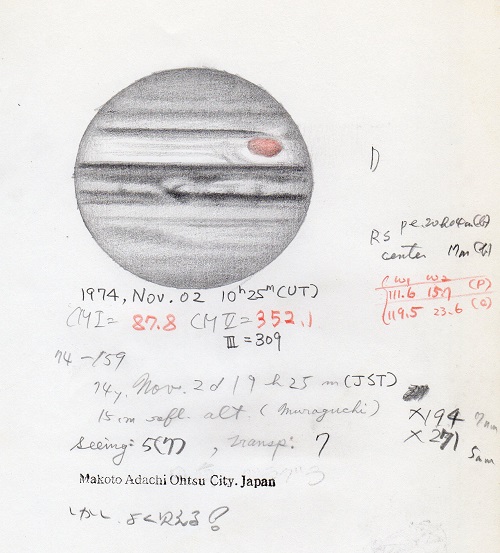 D
RS p.e. 20h04m
center 17m
ω1 ω2
111.6 15.7 (P)
119.5 23.6 (C)
1974, Nov. 02 10h25m (UT)
CMI= 87.8 CMII= 352.1
III = 309
74-159
74y. Nov. 2d 19h25m (JST)
15cm refl. alt. (Muraguchi)
×194 7mm
×271 5mm
Seeing: 5(7), transp: 7
Makoto Adachi Ohtsu City. Japan
しかし よく見える?